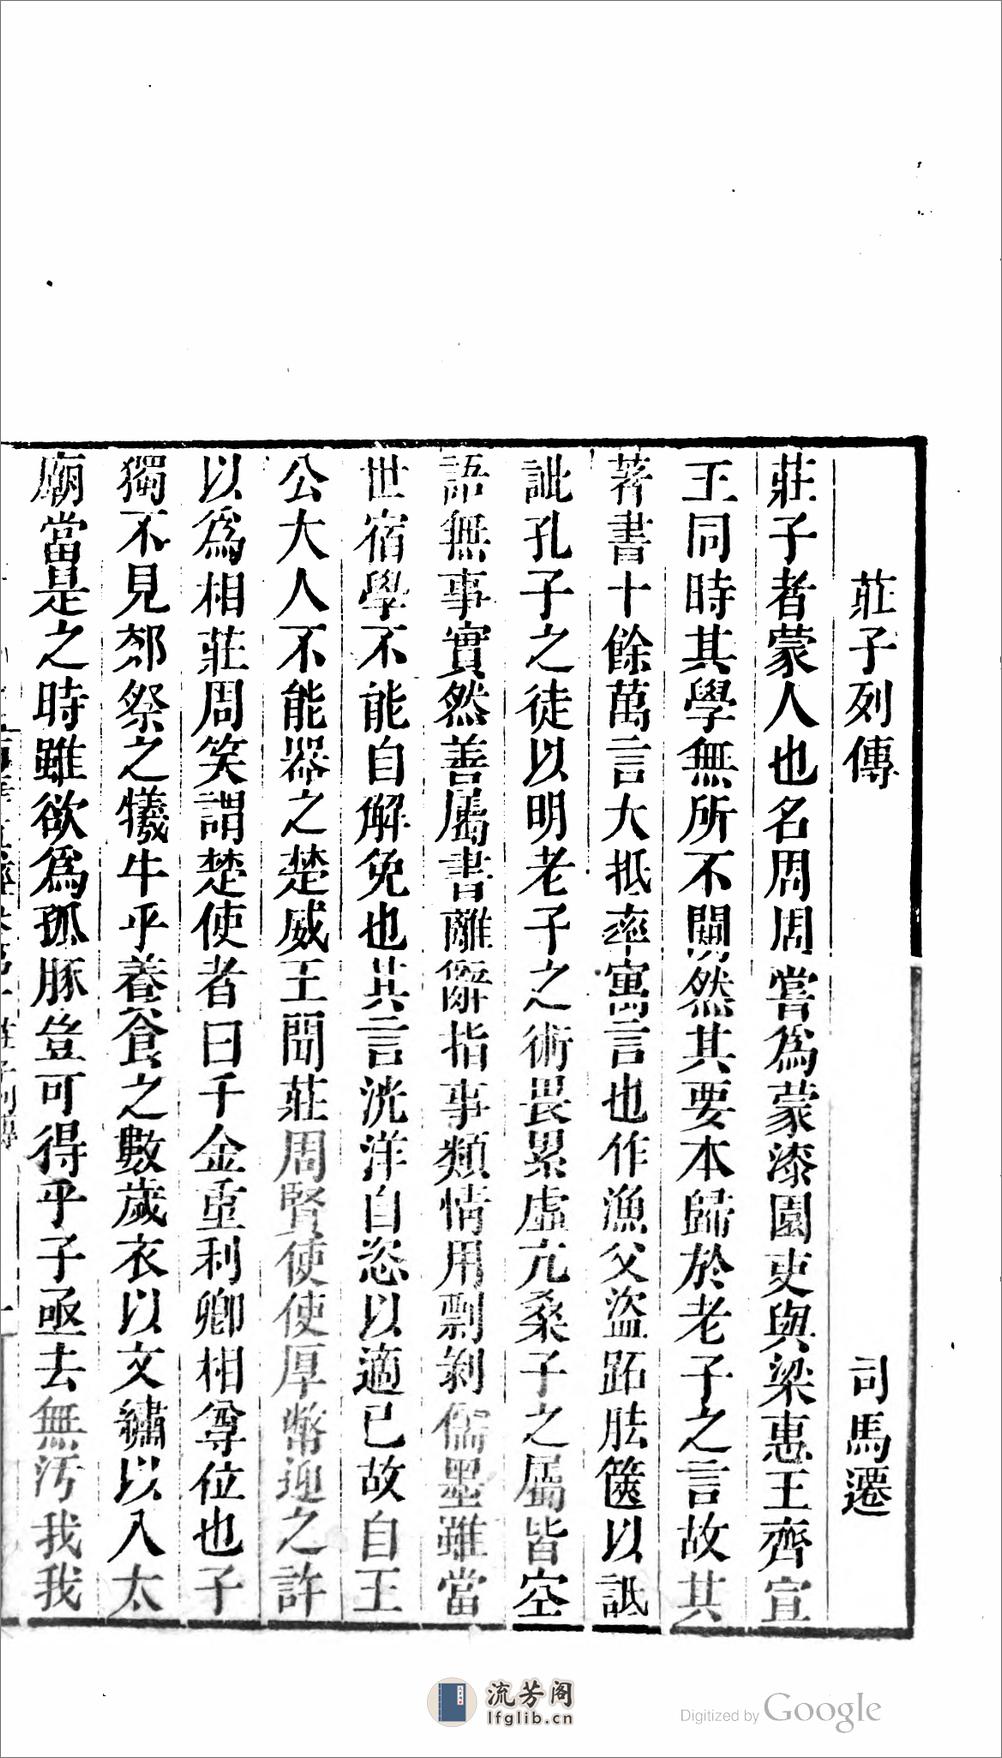 莊子列傳 司馬遷
莊子者蒙人也名周周嘗爲蒙漆園吏與梁惠王齊宣
王同時其學無所不闚然其要本歸於老子之言故其
著書十餘萬言大抵率寓言也作漁父盜跖胠篋以詆
訿孔子之徒以明老子之術畏累虛亢桑子之屬皆空
語無事實然善屬書離辭指事類情用剽剝儒墨雖當
世宿學不能自解免也其言洸洋自恣以適已故自王
公大人不能器之楚威王聞莊周賢使使厚幣迎之許
以爲相莊周笑謂楚使者曰千金重利卿相尊位也子
獨不見郊祭之犧牛乎養食之數歲衣以文繡以入太
廟當是之時雖欲爲孤豚豈可得乎子亟去無汚我我
流芳阁
lfglib.cn
Digitized by Google